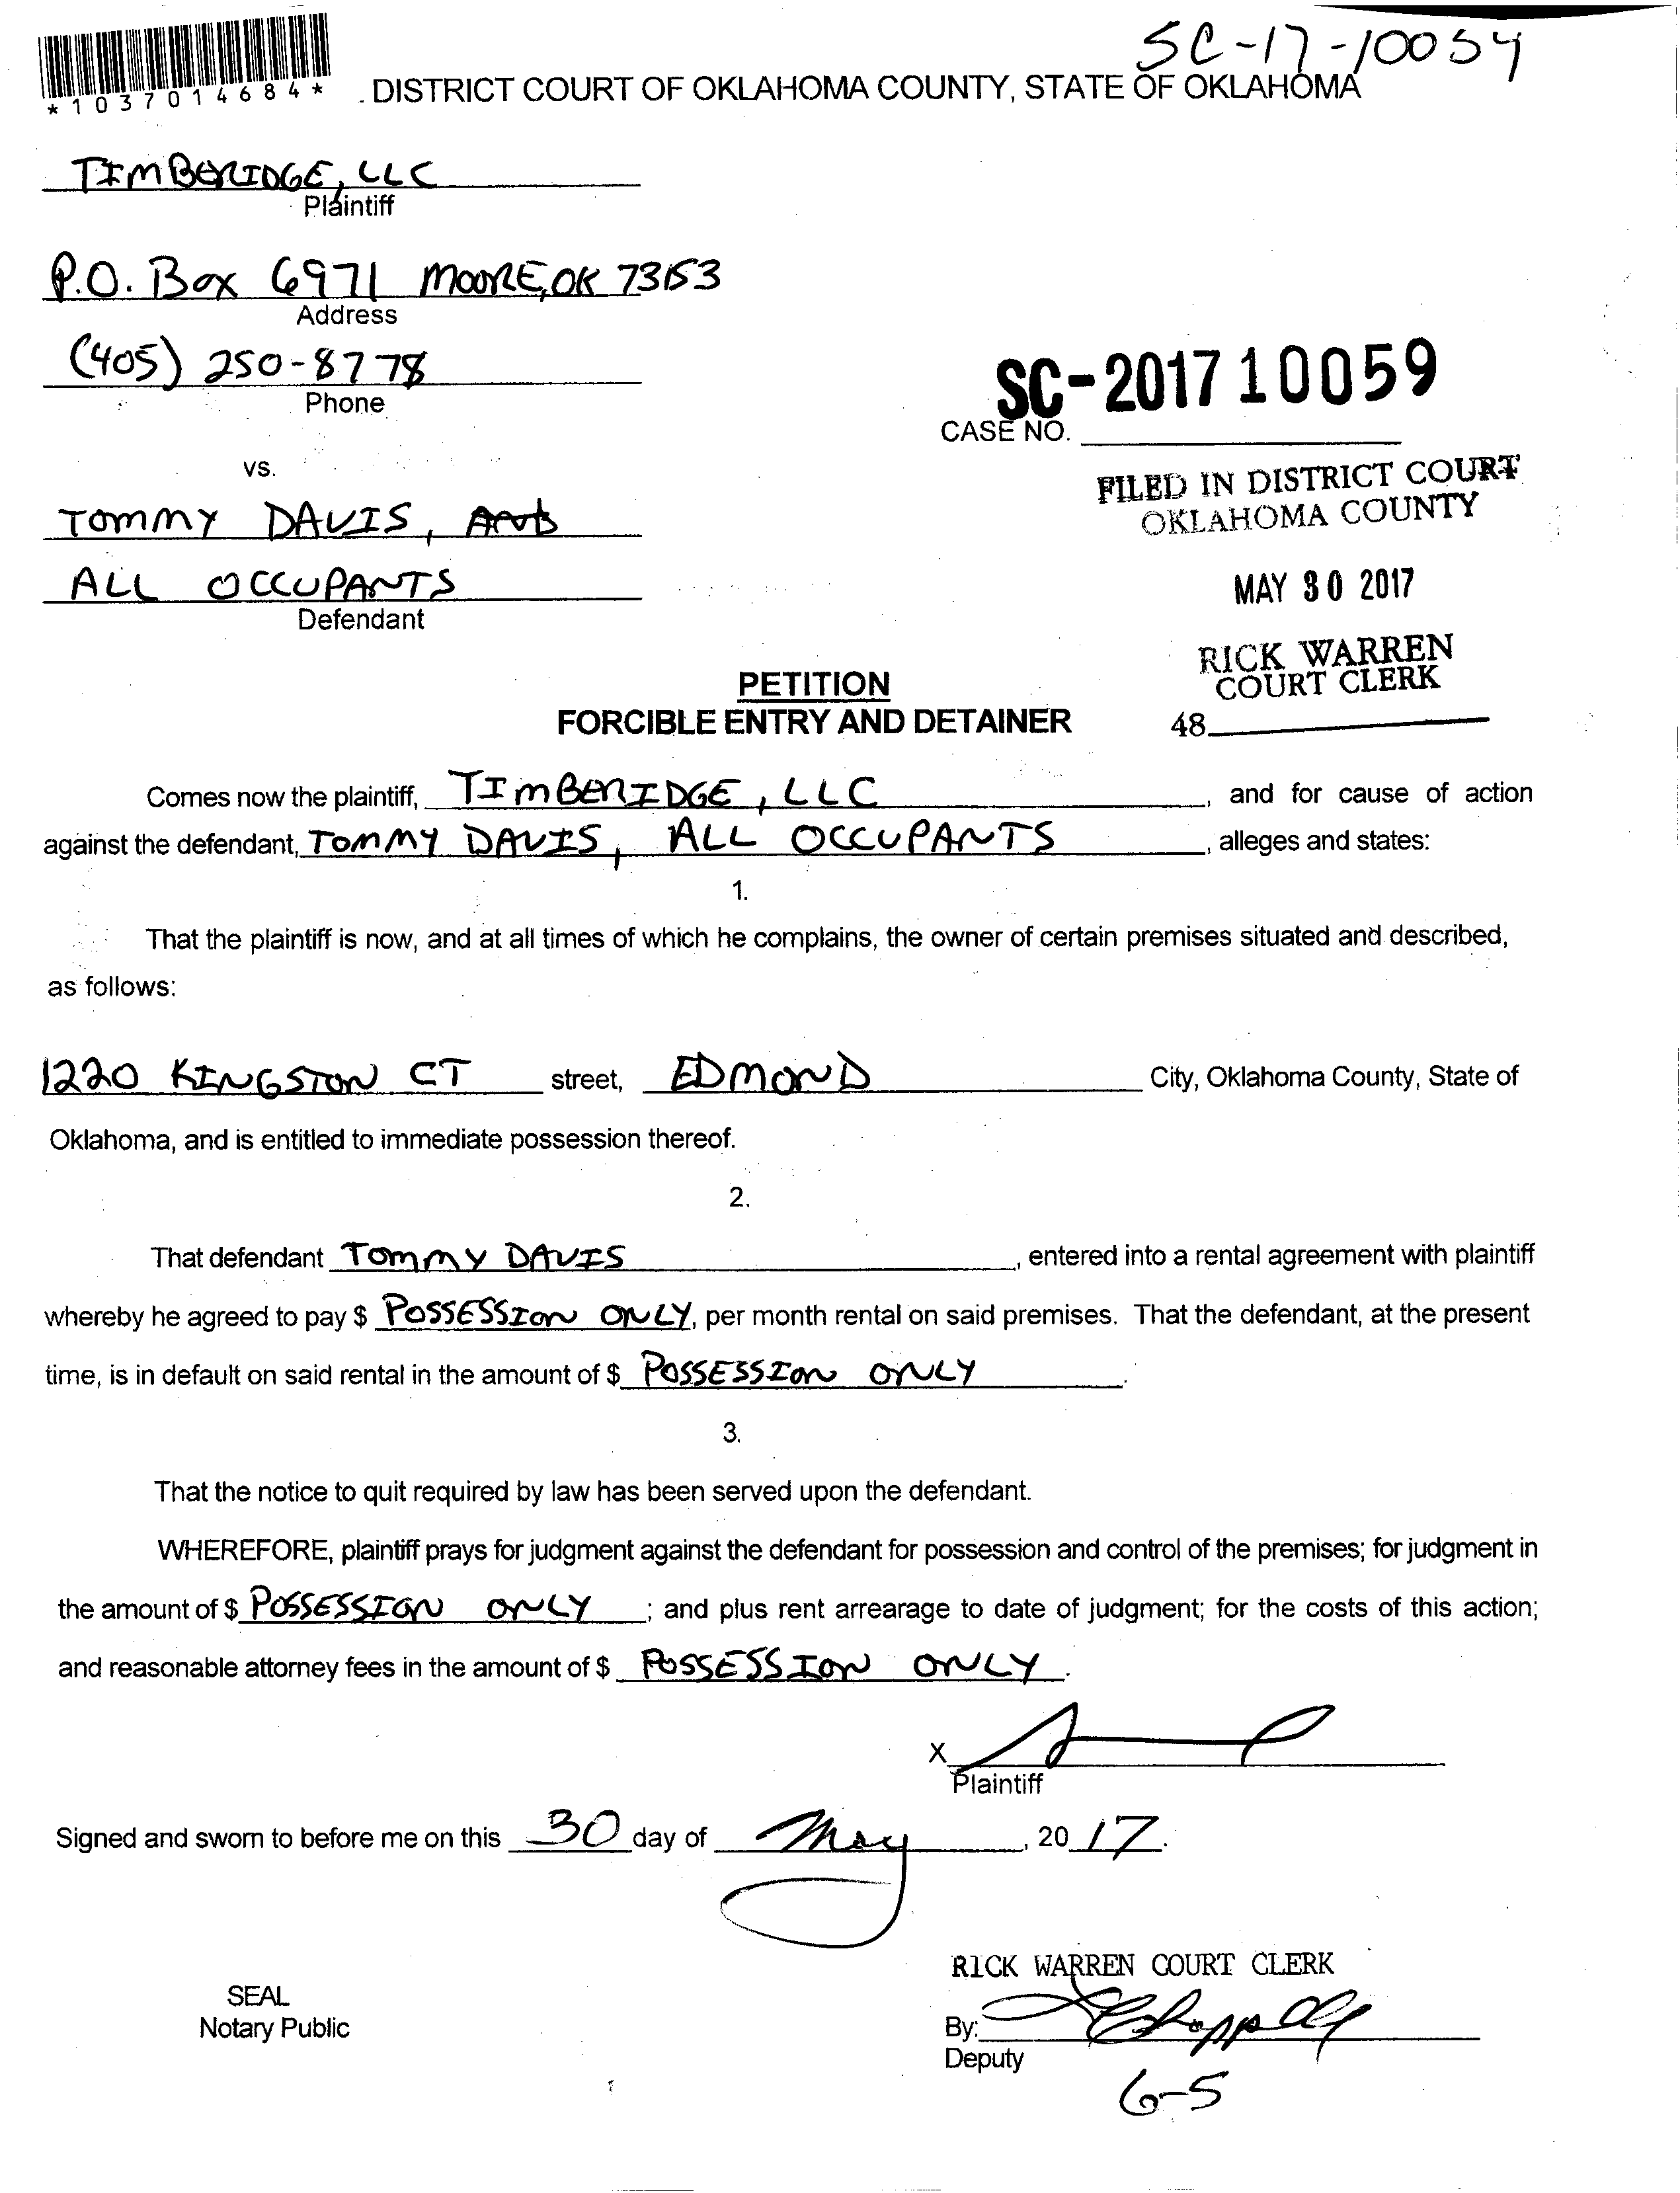 SC-17-10059
*1037014684*
DISTRICT COURT OF OKLAHOMA COUNTY, STATE OF OKLAHOMA
TIMBERIDGE, LLC
Plaintiff
P.O. Box 6971 MOORE, OK 73153
Address
(405) 250-8778
Phone
SC-2017 10059
CASE NO.
vs.
FILED IN DISTRICT COURT
OKLAHOMA COUNTY
TOMMY DAVIS, AND
ALL OCCUPANTS
Defendant
MAY 30 2017
RICK WARREN
COURT CLERK
48
PETITION
FORCIBLE ENTRY AND DETAINER
Comes now the plaintiff, TIMBERIDGE, LLC, and for cause of action
against the defendant, TOMMY DAVIS, ALL OCCUPANTS, alleges and states:
1.
That the plaintiff is now, and at all times of which he complains, the owner of certain premises situated and described,
as follows:
1220 KINGSTON CT street, EDMOND City, Oklahoma County, State of
Oklahoma, and is entitled to immediate possession thereof.
2.
That defendant TOMMY DAVIS, entered into a rental agreement with plaintiff
whereby he agreed to pay $ POSSESSION ONLY, per month rental on said premises. That the defendant, at the present
time, is in default on said rental in the amount of $ POSSESSION ONLY.
3.
That the notice to quit required by law has been served upon the defendant.
WHEREFORE, plaintiff prays for judgment against the defendant for possession and control of the premises; for judgment in
the amount of $ POSSESSION ONLY; and plus rent arrearage to date of judgment; for the costs of this action;
and reasonable attorney fees in the amount of $ POSSESSION ONLY.
X
Plaintiff
Signed and sworn to before me on this 30 day of May, 20 17.
RICK WARREN COURT CLERK
SEAL
Notary Public
By:
Deputy
6-5